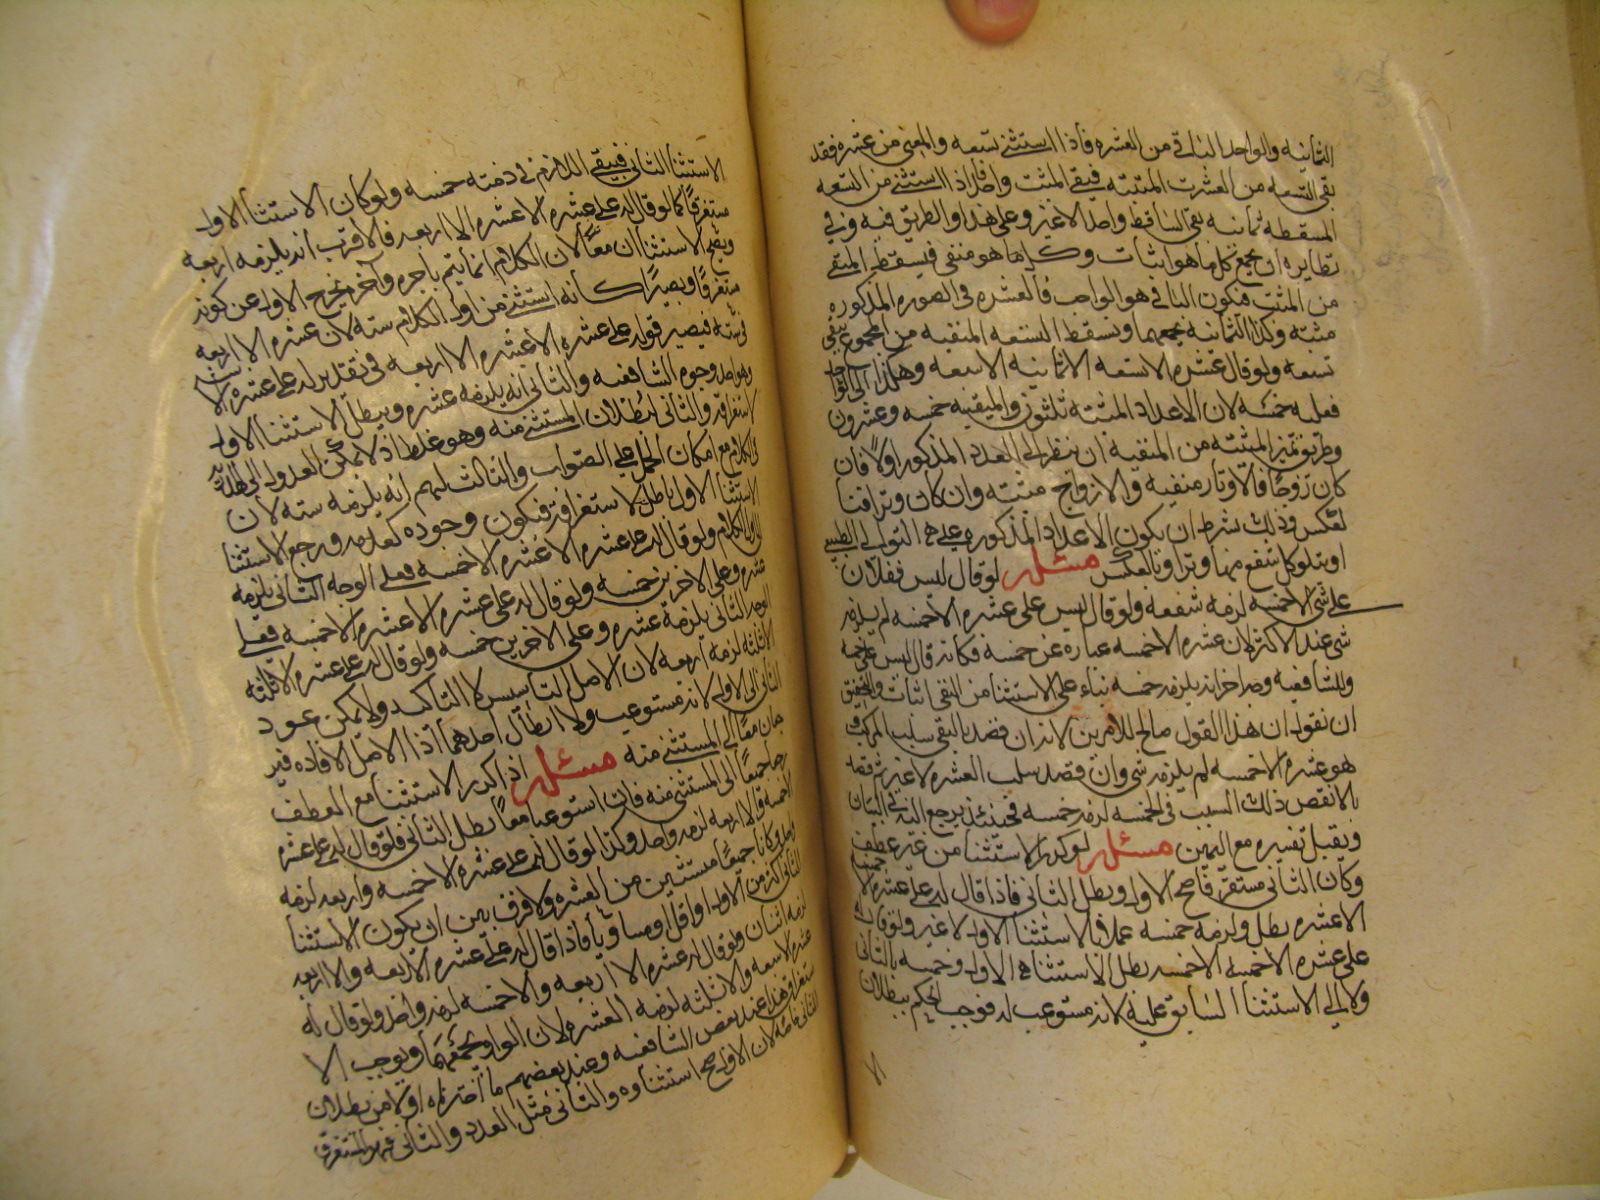 الثمانيه والواحد الباقي من العشره فاذا استثنى تسعه والمعنى من عشره فقد
بقى التسعه من العشرة المثبته فبقى المثبت واحد فاذا استثنى من التسعه
المسقطه ثمانيه بقى الساقط واحد لا غير وعلى هذا والطريق فيه وفي
نظايره ان يجمع كلما هو اثبات وكل ما هو منفى فيسقط المنفى
من المثبت فيكون الباقي هو الواجب فالعشره في الصوره المذكوره
مثبته وكذا الثمانيه فجمعهما ويسقط التسعه المنفيه من المجموع يبقى
تسعه ولو قال عشره الا تسعه الا ثمانيه الا سبعه وهكذا الى الواحد
فعليه خمسه لان الاعداد المثبته ثلثون والمنفيه خمسه وعشرون
وطريق تميز المثبته من المنفيه ان ننظر الى العدد المذكور اولا فان
كان زوجا فالاوتار منفيه والازواج مثبته وان كان وترا فبا
لعكس وذلك شرط ان يكون الاعداد المذكوره على التوالى الطبيعي
او يتلو كل شفع منها وترا وبالعكس مسئله لو قال ليس لفلان
على شي الا خمسه لزمه خمسه ولو قال ليس على عشره الا خمسه لم يلزمه
شي عند الاكثر لان عشره الا خمسه عباره عن خمسه فكانه قال ليس على خمسه
وللشافعيه وجه اخر انه يلزمه خمسه بناء على الاستثنا من النفى اثبات والتحقيق
ان نقول ان هذا القول صالح للامرين لانه ان قصد بالنفى سلب المركب
هو عشره الا خمسه لم يلزمه شي وان قصد سلب العشره لا غير ثم
بالا نقص ذلك السبب في الخمسه لزمه خمسه فحينئذ يرجع اليه في البيان
ويقبل تفسيره مع اليمين مسئله لو كرر الاستثنا من غير عطف
وكان الثاني مستغرقا صح الاول وبطل الثاني فاذا قال له على عشره الا خمسه
الا عشره بطل ولزمه خمسه عملا بالاستثنا الاول لا غير ولو قال له
على عشره الا خمسه الا خمسه بطل الاستثنا الاول وخمسه بالثاني
ولا الى الاستثنا السابق عليه لانه مستوعب له فوجب الحكم ببطلان
الاستثنا الثاني فيبقى اللازم في ذمته خمسه ولو كان الاستثنا الاول
مستغرقا كما لو قال له على عشره الا عشره الا اربعه فالاقرب انه يلزمه اربعه
ويصح الاستثنا ان معا لان الكلام انما يتم باخره وآخره يخرج الاول عن كونه
مستغرقا ويصير كانه استثنى من اول الكلام سته لان عشره الا اربعه
سته فيصير قوله على عشره الا عشره الا اربعه في تقدير له على عشره الا سته
وهو احد وجوه الشافعيه والثاني انه يلزمه عشره ويبطل الاستثنا الاول
لاستغراقه والثاني لبطلان المستثنى منه وهو غلط اذ لا يمكن العدول الى
الكلام مع امكان الحمل على الصواب والثالث لهم انه يلزمه سته لان
الاستثنا الاول باطل لاستغراقه فيكون وجوده كعدمه ورجع الاستثنا
الى اول الكلام ولو قال له على عشره الا عشره الا خمسه فعلى الوجه الثاني يلزمه
عشره وعلى الاخرين خمسه ولو قال له على عشره الا عشره الا خمسه فعلى
الوجه الثاني يلزمه عشره وعلى الاخرين خمسه ولو قال له على عشره الا ثلثه
الا ثلثه لزمه اربعه لان الاصل التاسيس لا التاكيد ولا يمكن عود
الثاني الى الاول لانه مستوعب ولا ابطال احدهما اذ الاصل الافاده فير
جعان معا الى المستثنى منه مسئله اذا كرر الاستثنا مع العطف
رجعا جميعا الى المستثنى منه فان استوعبا معا بطل الثاني فلو قال له على عشره
الا خمسه والا اربعه لزمه واحد وكذا لو قال له على عشره الا خمسه واربعه لزمه
واحد وكانا جميعا مستثنين من العشره ولا فرق بين ان يكون الاستثنا
الثاني اكثر من الاول او اقل او مساويا فاذا قال له على عشره الا اربعه والا اربعه
لزمه اثنان ولو قال له عشره الا اربعه والا خمسه لزمه واحد ولو قال له
عشره الا سبعه والا ثلثه لزمه العشره لان الواو يجمعهما ويوجب الا
ستغراق هذا عند بعض الشافعيه وعند بعضهم ما اخترناه اولا من بطلان
الثاني خاصه لان الاول صح استثناوه والثاني مثل العدد والثاني فهو المستغرق